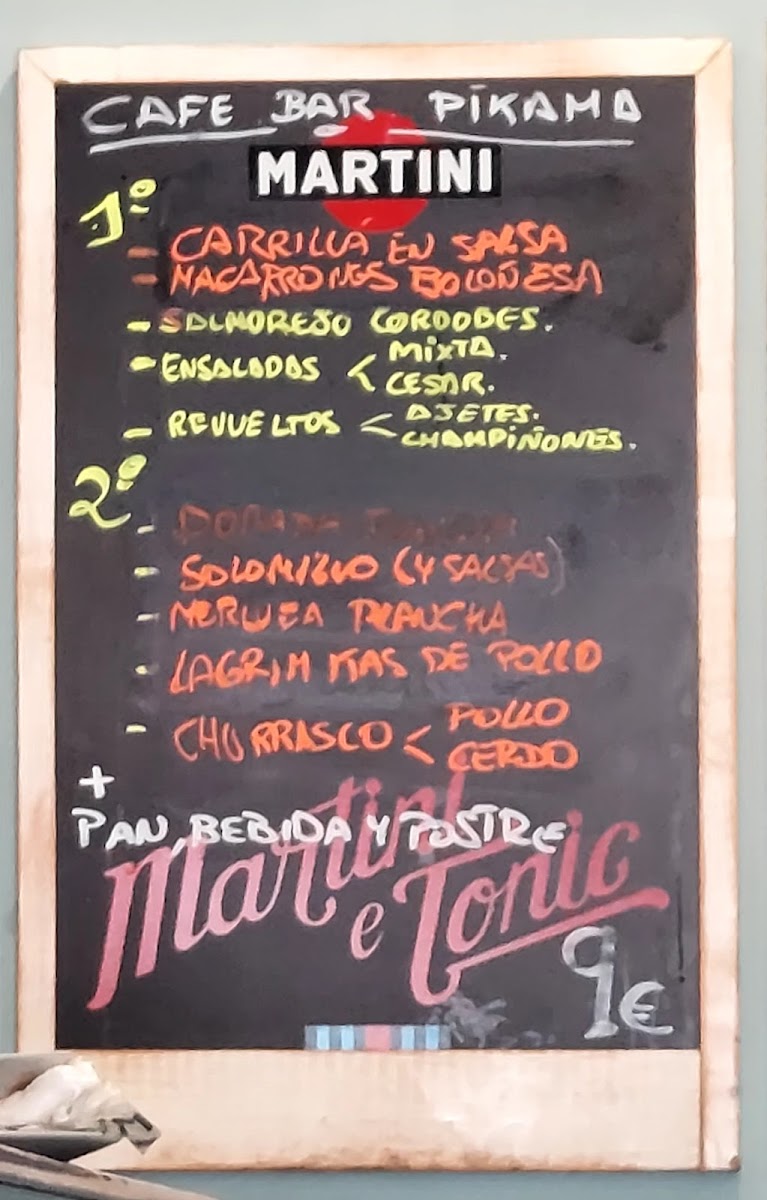 CAFE BAR PIKAMA
MARTINI
1º
- CARRILLA EN SALSA
- MACARRONES BOLOÑESA
- SALMOREJO CORDOBES.
- ENSALADAS < MIXTA.
CESAR.
- REVUELTOS < AJETES.
CHAMPIÑONES.
2º
- DORADA
- SOLOMILLO (4 SALSAS)
- MERLUZA PLANCHA
- LAGRIMITAS DE POLLO
- CHURRASCO < POLLO
CERDO
+
PAN, BEBIDA Y POSTRE
Martini
e Tonic
9€